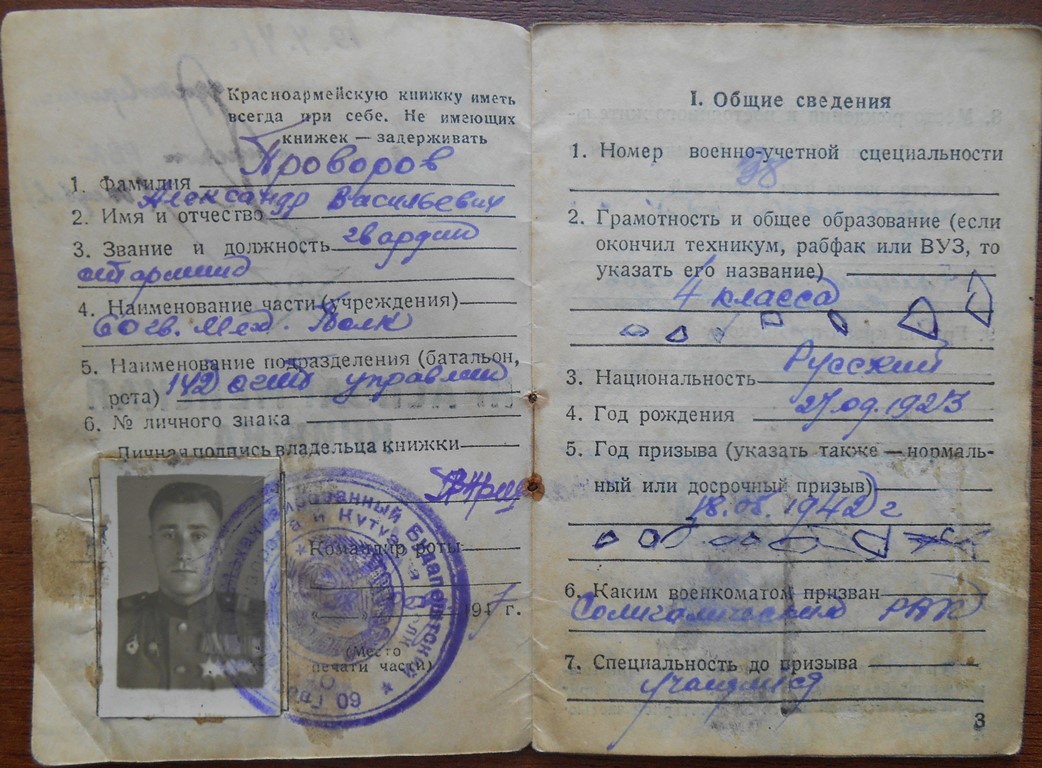 Красноармейскую книжку иметь
всегда при себе. Не имеющих
книжек — задерживать
1. Фамилия Проворов
2. Имя и отчество Александр Васильевич
3. Звание и должность гвардии
старшина
4. Наименование части (учреждения)
60 гв. Мех. Полк
5. Наименование подразделения (батальон,
рота) управлен
6. № личного знака
Личная подпись владельца книжки
Командир роты
« » 1947 г.
(Место
печати части)
I. Общие сведения
1. Номер военно-учетной специальности
2. Грамотность и общее образование (если
окончил техникум, рабфак или ВУЗ, то
указать его название)
4 класса
3. Национальность Русский
4. Год рождения 27.09.1923
5. Год призыва (указать также — нормаль-
ный или досрочный призыв)
18.05.1942 г
6. Каким военкоматом призван
Солигаличский РВК
7. Специальность до призыва
учащийся
3